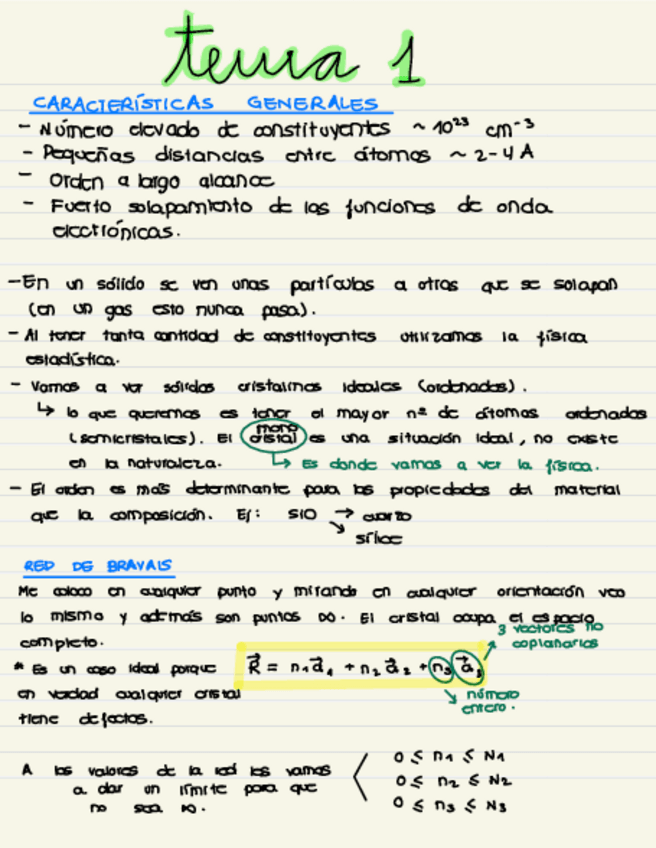 tema 1
CARACTERÍSTICAS GENERALES
- Número elevado de constituyentes ~ 10²³ cm⁻³
- Pequeñas distancias entre átomos ~ 2-4 A
- Orden a largo alcance
- Fuerte solapamiento de las funciones de onda
electrónicas.
- En un sólido se ven unas partículas a otras que se solapan
(en un gas esto nunca pasa).
- Al tener tanta cantidad de constituyentes utilizamos la física
estadística.
- Vamos a ver sólidos cristalinos ideales (ordenados).
↳ lo que queremos es tener el mayor nº de átomos ordenados
(semicristales). El mono cristal es una situación ideal, no existe
en la naturaleza. ↳ Es donde vamos a ver la física.
- El orden es más determinante para las propiedades del material
que la composición. Ej: SiO → cuarzo
↘ sílice
RED DE BRAVAIS
Me coloco en cualquier punto y mirando en cualquier orientación veo
lo mismo y además son puntos ∞. El cristal ocupa el espacio
completo.
3 vectores no
coplanarios
* Es un caso ideal porque
en verdad cualquier cristal
tiene defectos.
R⃗ = n₁a⃗₁ + n₂a⃗₂ + n₃a⃗₃
número
entero.
A los valores de la red les vamos
a dar un límite para que
no sea ∞.
0 ≤ n₁ ≤ N₁
0 ≤ n₂ ≤ N₂
0 ≤ n₃ ≤ N₃